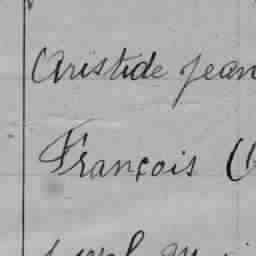 Aristide Jean
François